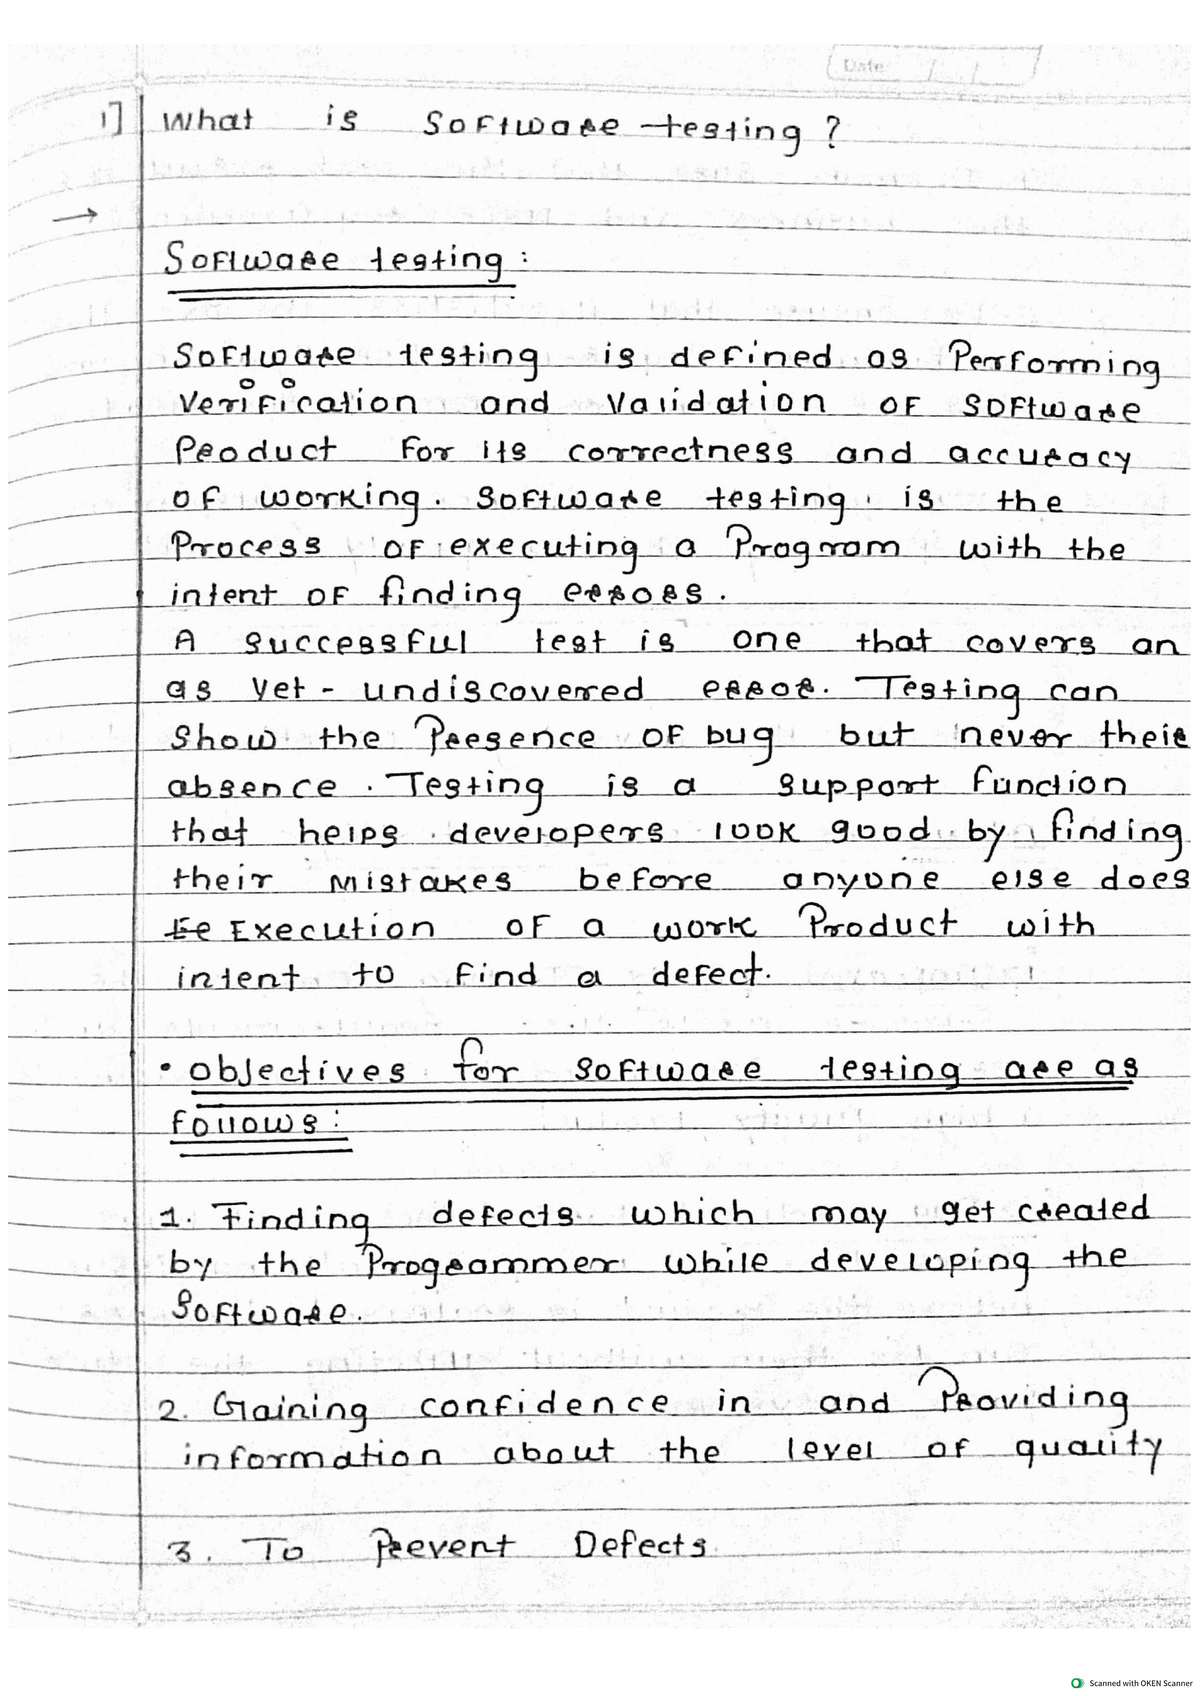 Date
1] What is Software testing ?
→
Software testing :
Software testing is defined as Performing
Verification and Validation of software
Product for its correctness and accuracy
of working. Software testing is the
Process of executing a Program with the
intent of finding errors.
A successful test is one that covers an
as yet - undiscovered error. Testing can
show the Presence of bug but never their
absence. Testing is a support function
that helps developers look good by finding
their mistakes before anyone else does
Execution of a work Product with
intent to find a defect.
• Objectives for software testing are as
follows :
1. Finding defects which may get created
by the Programmer while developing the
Software.
2. Gaining confidence in and Providing
information about the level of quality
3. To Prevent Defects
Scanned with OKEN Scanner